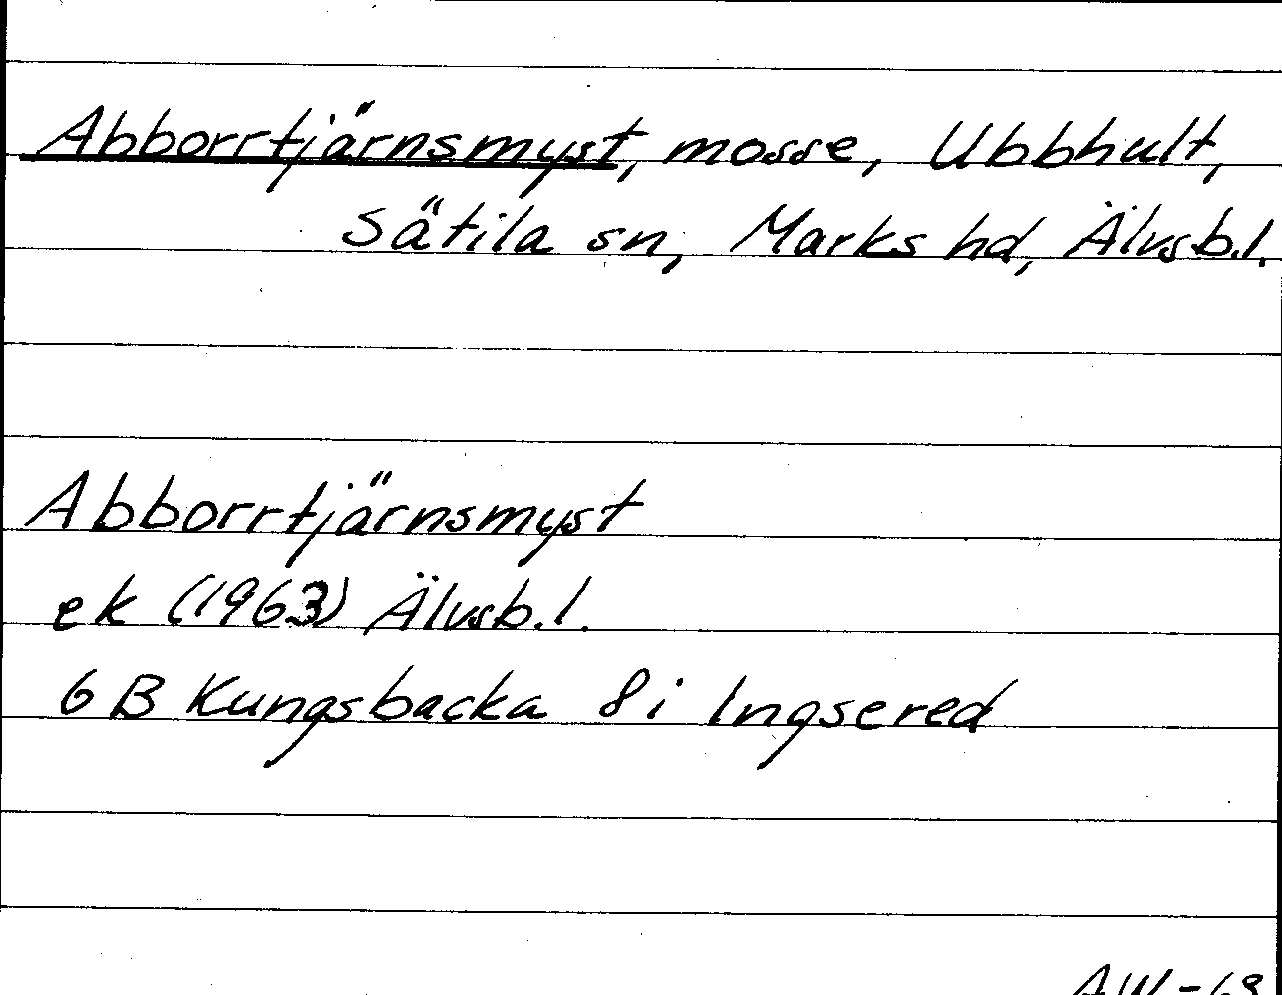 Abborrtjärnsmyst, mosse, Ubbhult,
Sätila sn, Marks hd, Älvsb.l.
Abborrtjärnsmyst
ek (1963) Älvsb.l.
6 B Kungsbacka 8i Ingsered
AW-68